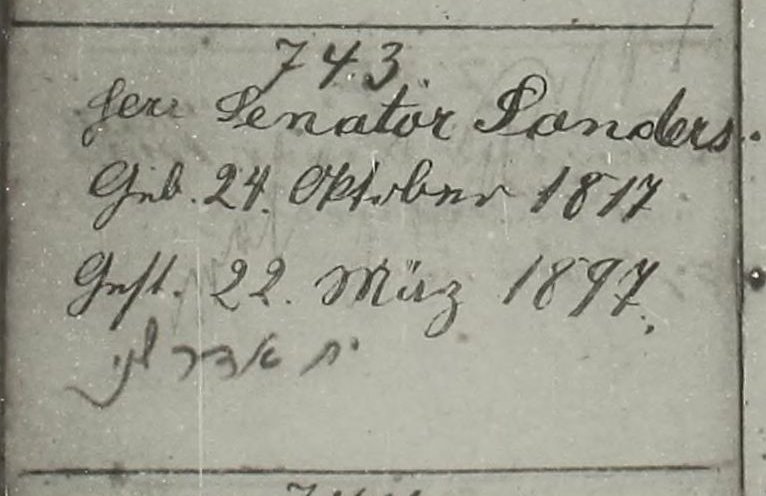 743
Herr Senator Sanders.
Geb. 24. Oktober 1817
Gest. 22. März 1897.
יח אדר שני